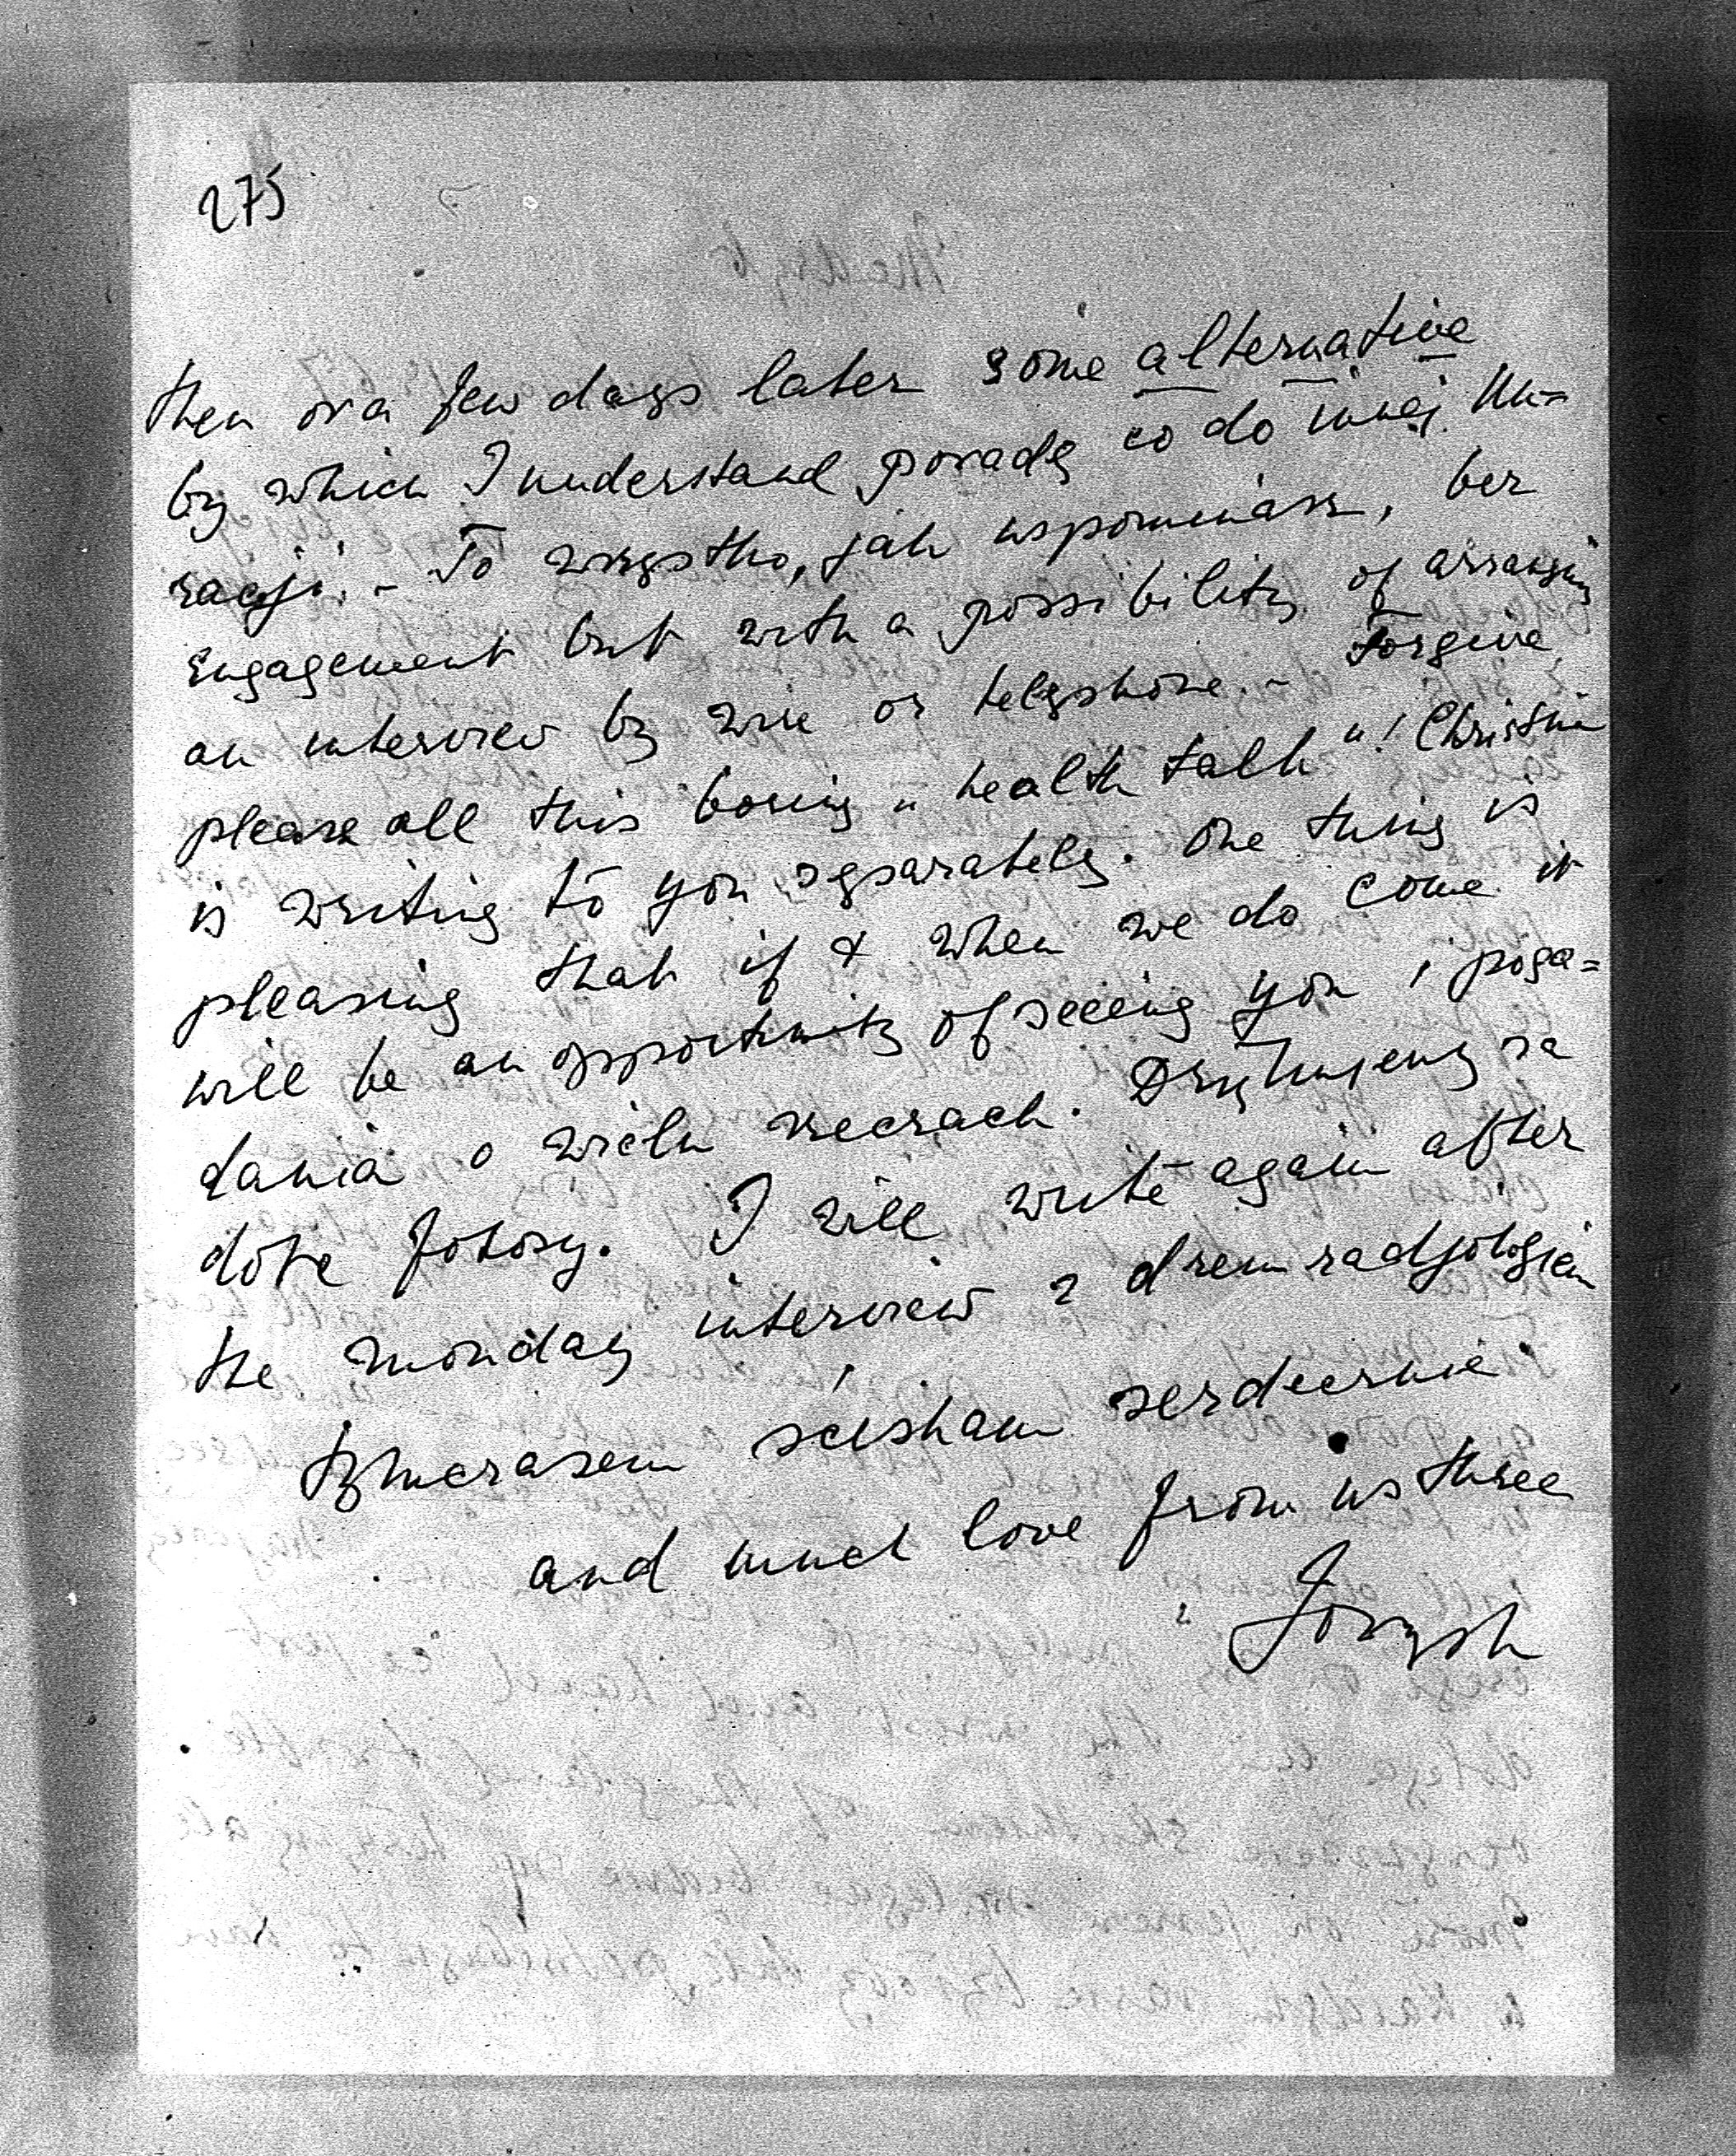 275
then or a few days later some alternative
by which I understand poradę co do innej ku=
racji. - To wszystko, jak wspominasz, bez
engagement but with a possibility of arranging
an interview by wire or telephone. - Forgive
please all this boring „health talk"! Christine
is writing to you separately. One thing is
pleasing that if & when we do come it
will be an opportunity of seeing you i poga=
dania o wielu rzeczach. Dziękujemy za
dobre fotosy. I will write again after
the monday interview z drem radjologiem
tymczasem ściskam serdecznie
and much love from us three